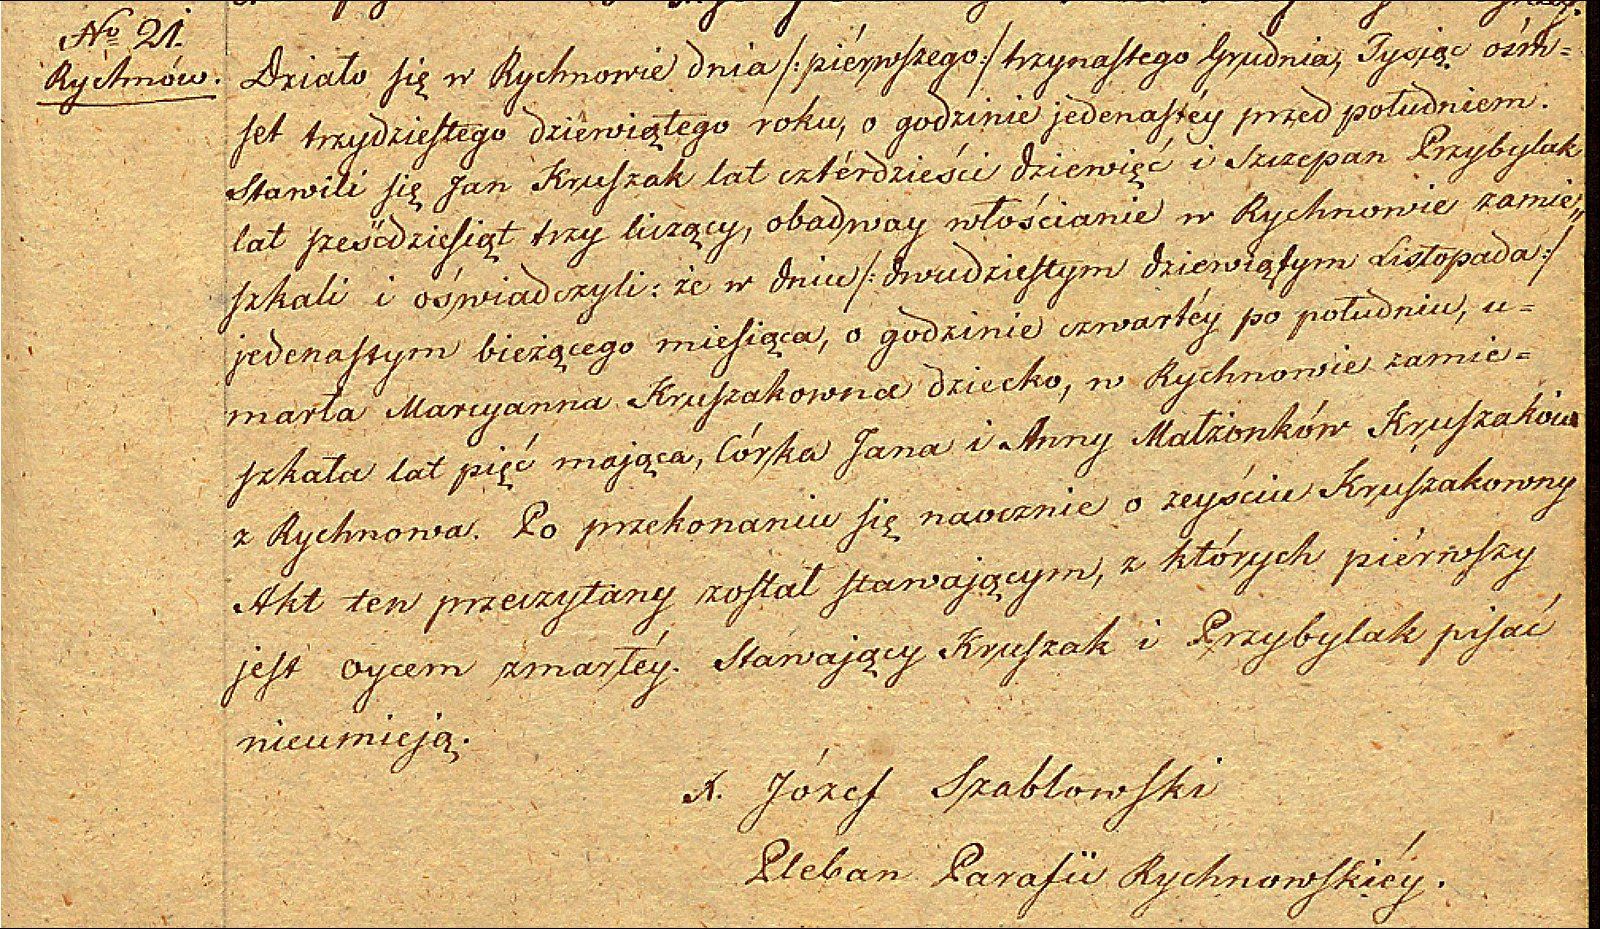 No 21.
Rychnów.
Działo się w Rychnowie dnia /: piérwszego :/ trzynastego Grudnia, Tysiąc ośm=
set trzydziestego dziewiątego roku, o godzinie jedenastéy przed południem.
Stawili się Jan Kruszak lat cztérdzieści dziewięć i Szczepan Przybylak
lat sześćdziesiąt trzy liczący, obadway włościanie w Rychnowie zamie„
szkali i oświadczyli: że w dniu /: dwudziestym dziewiątym Listopada :/
jedenastym bieżącego miesiąca, o godzinie czwartéy po południu, u=
marła Maryanna Kruszakowna dziecko, w Rychnowie zamie=
szkała lat pięć mająca, Córka Jana i Anny Małżonków Kruszaków
z Rychnowa. Po przekonaniu się naocznie o zeyściu Kruszakowny
Akt ten przeczytany został stawającym, z których piérwszy
jest oycem zmarłéy. Stawający Kruszak i Przybylak pisać
nieumieją.
X. Józef Szabłowski
Pleban Parafii Rychnowskiéy.